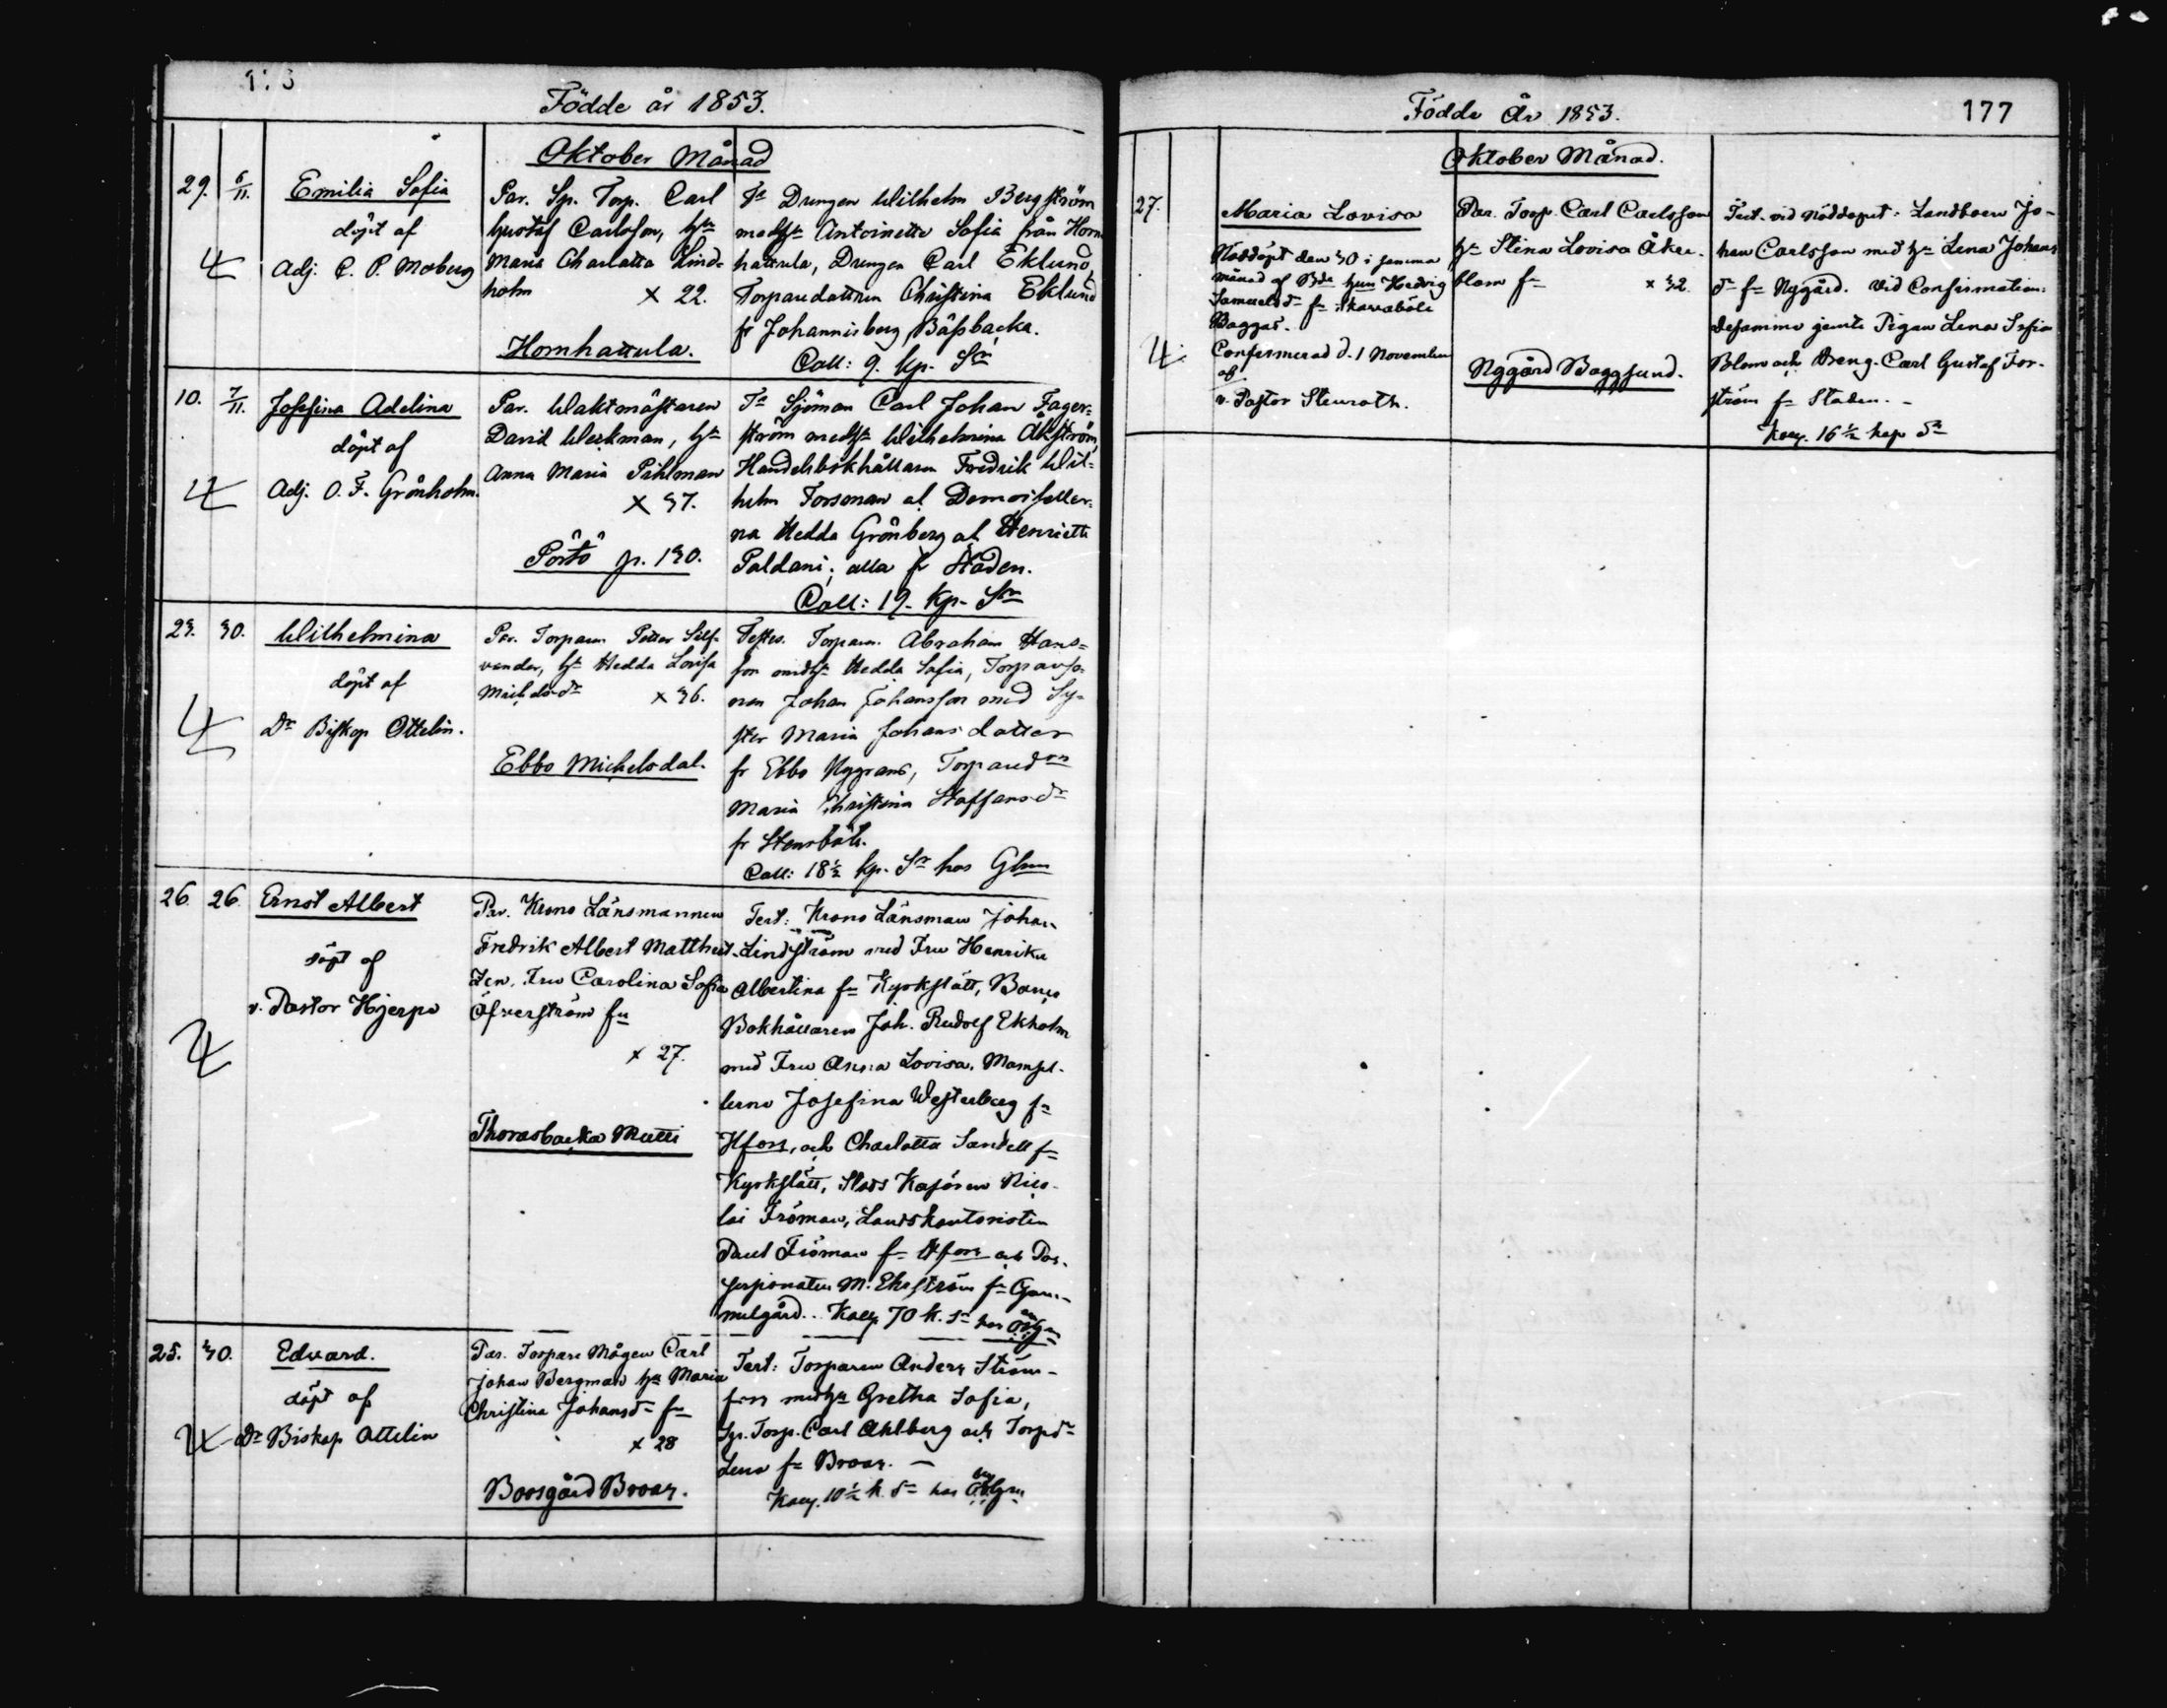 Födde år 1853.
Oktober Månad
29. 6/11. Emilia Sofia
döpt af
Adj. C. P. Moberg
Par. Sp. Torp. Carl
Gustaf Carlsson, hn
Maria Charlotta Lind-
holm x 22.
Hornhattula.
Ts Drengen Wilhelm Bergström
medst Antoinette Sofia från Horn
hattula, Drengen Carl Eklund,
Torparedottren Christina Eklund
fr Johannisberg, Båssbacka.
Coll: 9. kp. Sr
10. 7/11. Josefina Adelina
döpt af
Adj. O. F. Grönholm.
Par. Waktmästaren
David Werkman, hn
Anna Maria Pihlman
x 37.
Pörtö p. 130.
Ts Sjöman Carl Johan Fager-
ström medst Wilhelmina Åkström,
Handelsbokhållaren Fredrik Wil-
helm Forsman al Demoiseller-
na Hedda Grönberg al Henriette
Paldani; alla fr Staden.
Coll: 19. Kp. Sr
23. 30. Wilhelmina
döpt af
Dr Biskop Ottelin.
Par. Torparen Petter Self-
vander, hn Hedda Lovisa
Michelsdr x 36.
Ebbo Michelsdal.
Testes. Torparen Abraham Hans-
son medst Hedda Sofia, Torparso-
nen Johan Johansson med Sy-
ster Maria Johansdotter
fr Ebbo Nygrans, Torparedrn
Maria Christina Staffansdr
fr Stensböle.
Coll: 18½ kp. Sr hos
26. 26. Ernst Albert
döpt af
v. Pastor Hjerpe
Par. Krono Länsmannen
Fredrik Albert Matthei-
zen, Fru Carolina Sofia
Öfverström fn
x 27.
Thorasbacka Matti
Test: Krono Länsman Johan
Lindström med Fru Henrika
Albertina fn Kyrkslätt, Banco
Bokhållaren Joh. Rudolf Ekholm
med Fru Anna Lovisa, Mamsel-
lerna Josefina Westerberg fn
Hfors, och Charlotta Sandell fn
Kyrkslätt, Slots Kasören Nico-
lai Fröman, Landskontoristen
Paul Fröman fn Hfors och Pos-
sessionaten M. Ekström fn Gam-
melgård. Koll. 70 k. Sr hos
25. 30. Edvard.
döpt af
Dr Biskop Ottelin
Par. Torpare Mågen Carl
Johan Bergman hn Maria
Christina Johansdr fn
x 28
Borsgård Broas.
Test: Torparen Anders Ström-
fors medhn Gretha Sofia,
Sp. Torp. Carl Ahlberg och Torpdr
Lena fn Broas. —
Koll. 10½ k. Sr hos
Födde År 1853. 177
Oktober Månad.
27. Maria Lovisa
Nöddöpt den 30 i samma
månad af Bde hun Hedvig
Samuelsdr fn Skavaböle
Baggas.
Confirmerad d. 1 November
af
v. Pastor Stenroth.
Par. Torp. Carl Carlsson
hn Stina Lovisa Åker-
blom fn x 32.
Nygård Baggsund.
Test. vid Nöddopet: Landboen Jo-
han Carlsson med hn Lena Johans
dr fn Nygård. Vid Confirmation:
desamma jemte Pigan Lena Sofia
Blom och Dreng. Carl Gustaf For-
ström fn Staden. —
Koll. 16½ kop Sr